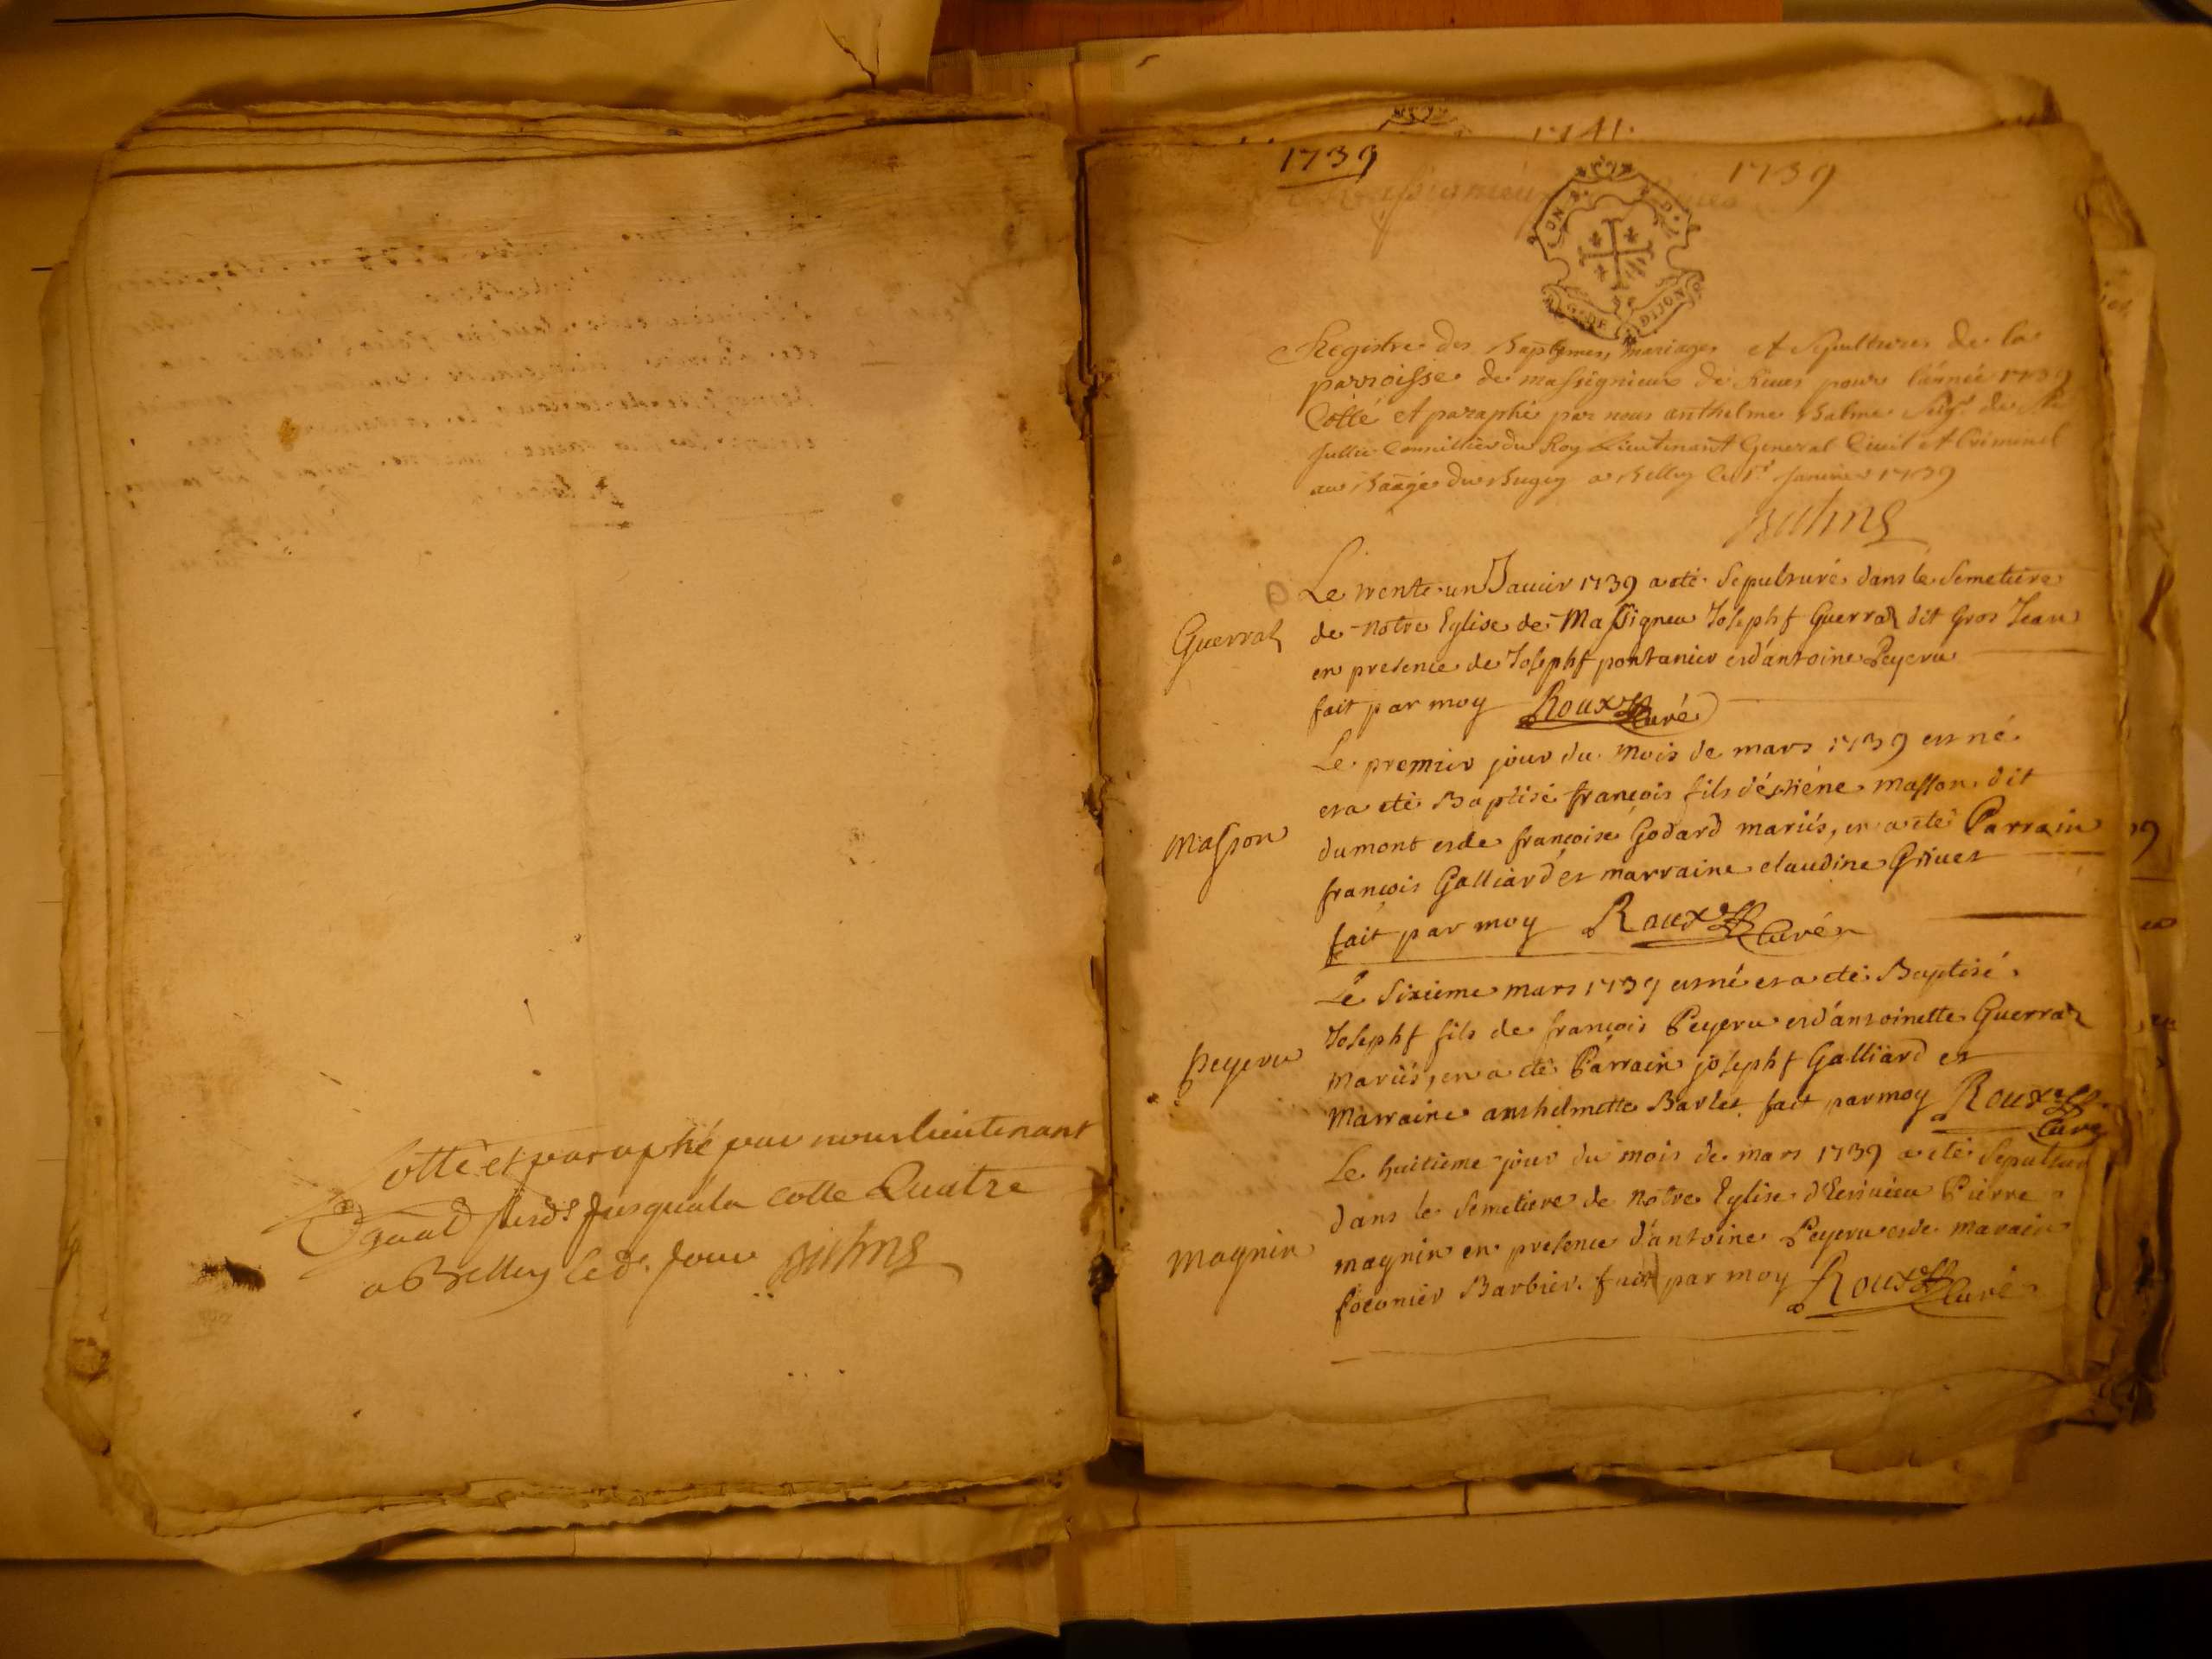 Cotté et paraphé par nous lieutenant
Jusqu'ala cotte Quatre
a Belley led. Jour Balme
1741.
1739
1739
G. DE DIJON
Registre des Baptemes, mariages et sepultures de la
parroisse de massignieux de Rives pour l'année 1739
Cotté et paraphé par nous anthelme Balme Seigr de Ste
Jullie Conseillier du Roy Lieutenant General Civil et Criminel
au Baage du Bugey a Belley le 1r Janvier 1739
Balme
Le trente un Janvier 1739 a eté Sepulturé dans le Semetiere
Guerraz
de Notre Eglise de Massigneu Josephf Guerraz dit Gros Jean
en presence de Josephf pontanier et d'antoine Peyeru
fait par moy Roux Curé
Le premier jour du mois de mars 1739 est né
et a eté Baptisé françois fils d'éstiéne masson dit
Masson
dumont et de françoise Godard mariés, en a eté Parrain
françois Galliard et marraine claudine Grivet
fait par moy Roux Curé
Le Sixieme mars 1739 est né et a eté Baptisé
Josephf fils de françois Peyeru et d'antoinette Guerraz
Peyeru
Mariés, en a eté Parrain josephf Galliard et
Marraine anthelmette Barlet fait par moy Roux
Curé
Le huitieme jour du mois de mars 1739 a eté Sepultur
dans le Semetiere de Notre Eglise d'Essieieu Pierre
Magnin
magnin en presence d'antoine Peyeru et de
Barbier. fait par moy Roux Curé